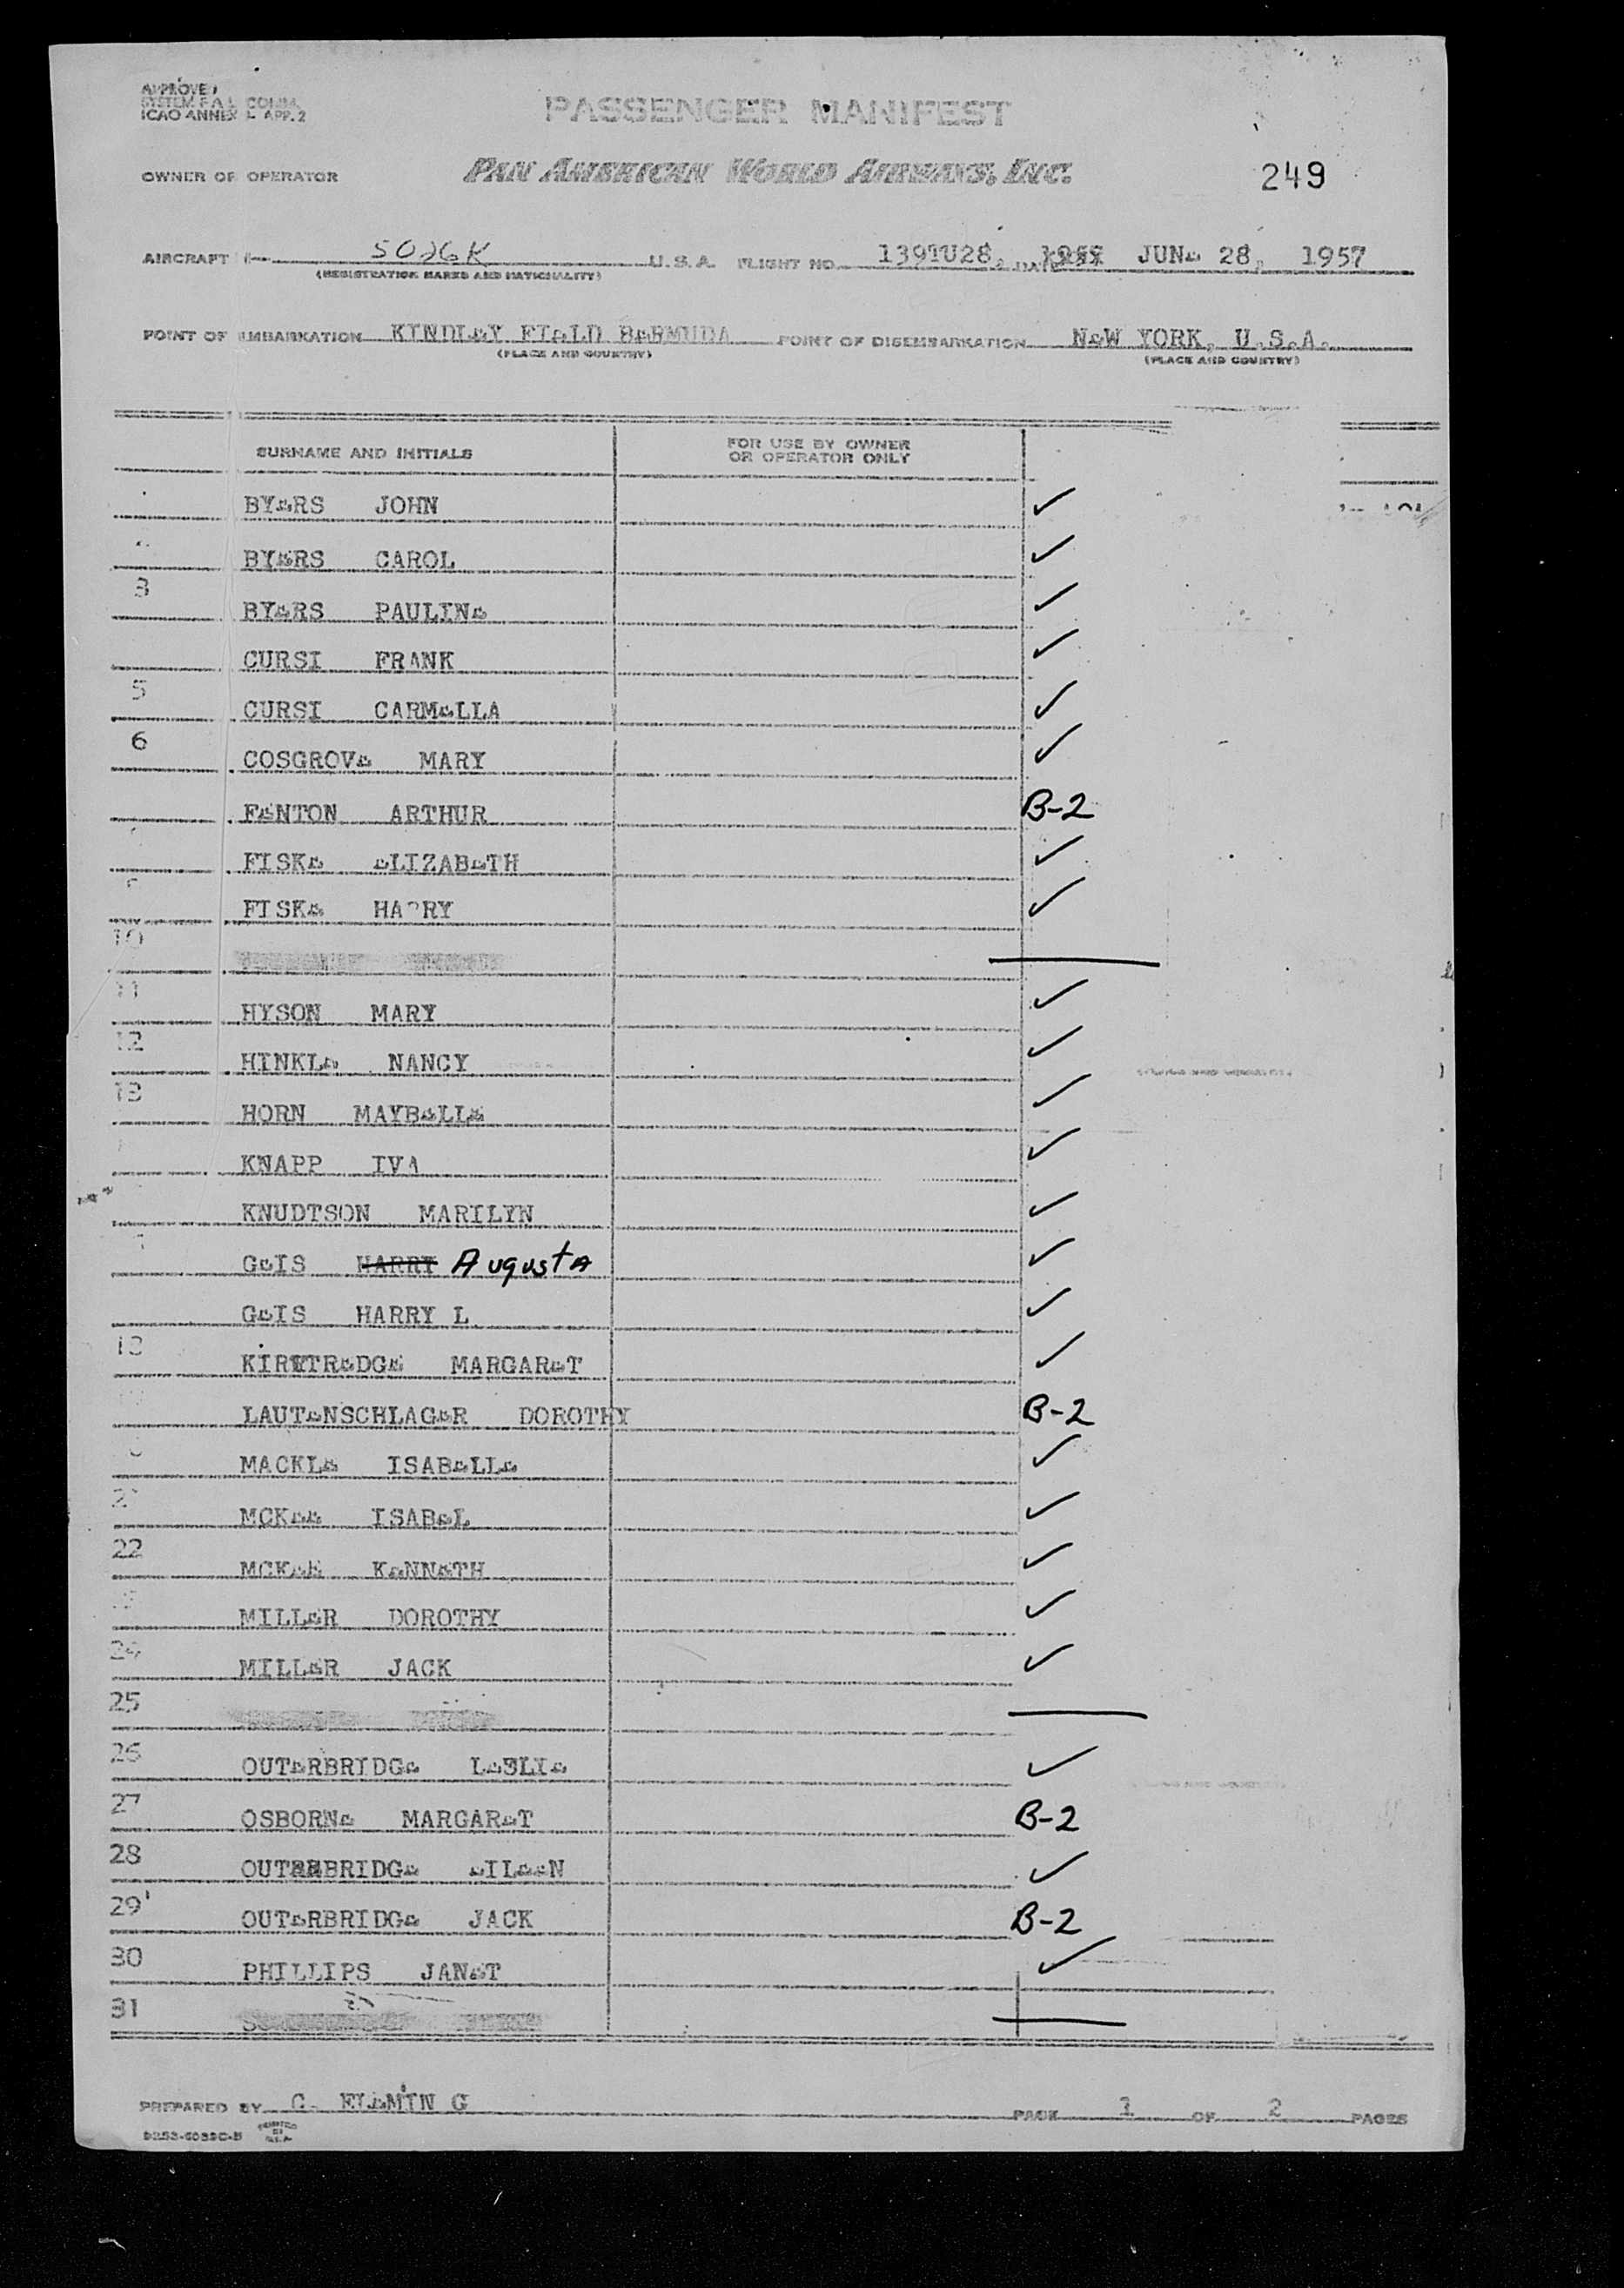 APPROVED
SYSTEM F.A.L. COMM.
ICAO ANNEX APP. 2
PASSENGER MANIFEST
OWNER OR OPERATOR PAN AMERICAN WORLD AIRWAYS, INC. 249
AIRCRAFT 5026K U.S.A. FLIGHT NO. 139TU28, DATE JUNe 28, 1957
(REGISTRATION MARKS AND NATIONALITY)
POINT OF EMBARKATION KINDLeY FIeLD BeRMUDA POINT OF DISEMBARKATION NeW YORK, U.S.A.
(PLACE AND COUNTRY) (PLACE AND COUNTRY)
SURNAME AND INITIALS FOR USE BY OWNER OR OPERATOR ONLY
BYeRS JOHN ✓
BYeRS CAROL ✓
3 BYeRS PAULINe ✓
CURSI FRANK ✓
5 CURSI CARMeLLA ✓
6 COSGROVe MARY ✓
FeNTON ARTHUR B-2
FISKe eLIZABeTH ✓
FISKe HARRY ✓
10
11 HYSON MARY ✓
12 HINKLe NANCY ✓
13 HORN MAYBeLLe ✓
KNAPP IVA ✓
KNUDTSON MARILYN ✓
GeIS HARRY Augusta ✓
GeIS HARRY L ✓
18 KIRKTReDGe MARGAReT ✓
LAUTeNSCHLAGeR DOROTHY B-2
MACKLe ISABeLLe ✓
21 MCKee ISABeL ✓
22 MCKeE KeNNeTH ✓
MILLeR DOROTHY ✓
24 MILLeR JACK ✓
25
26 OUTeRBRIDGe LeSLIe ✓
27 OSBORNe MARGAReT B-2
28 OUTERBRIDGe eILeeN ✓
29 OUTeRBRIDGe JACK B-2
30 PHILLIPS JANeT ✓
31
PREPARED BY C. FLeMIN G PAGE 1 OF 2 PAGES
PRINTED IN U.S.A.